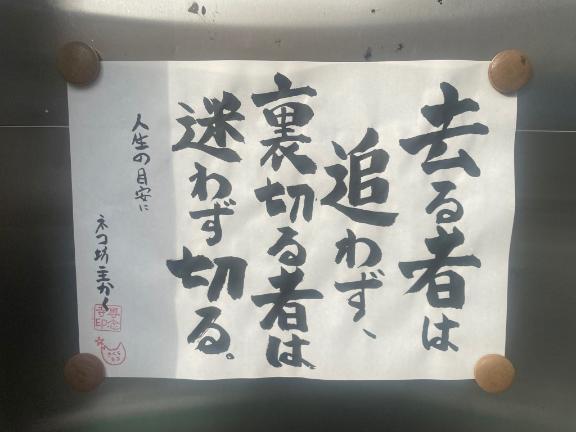 去る者は
追わず、
裏切る者は
迷わず切る。
人生の目安に
ネコ坊主かく